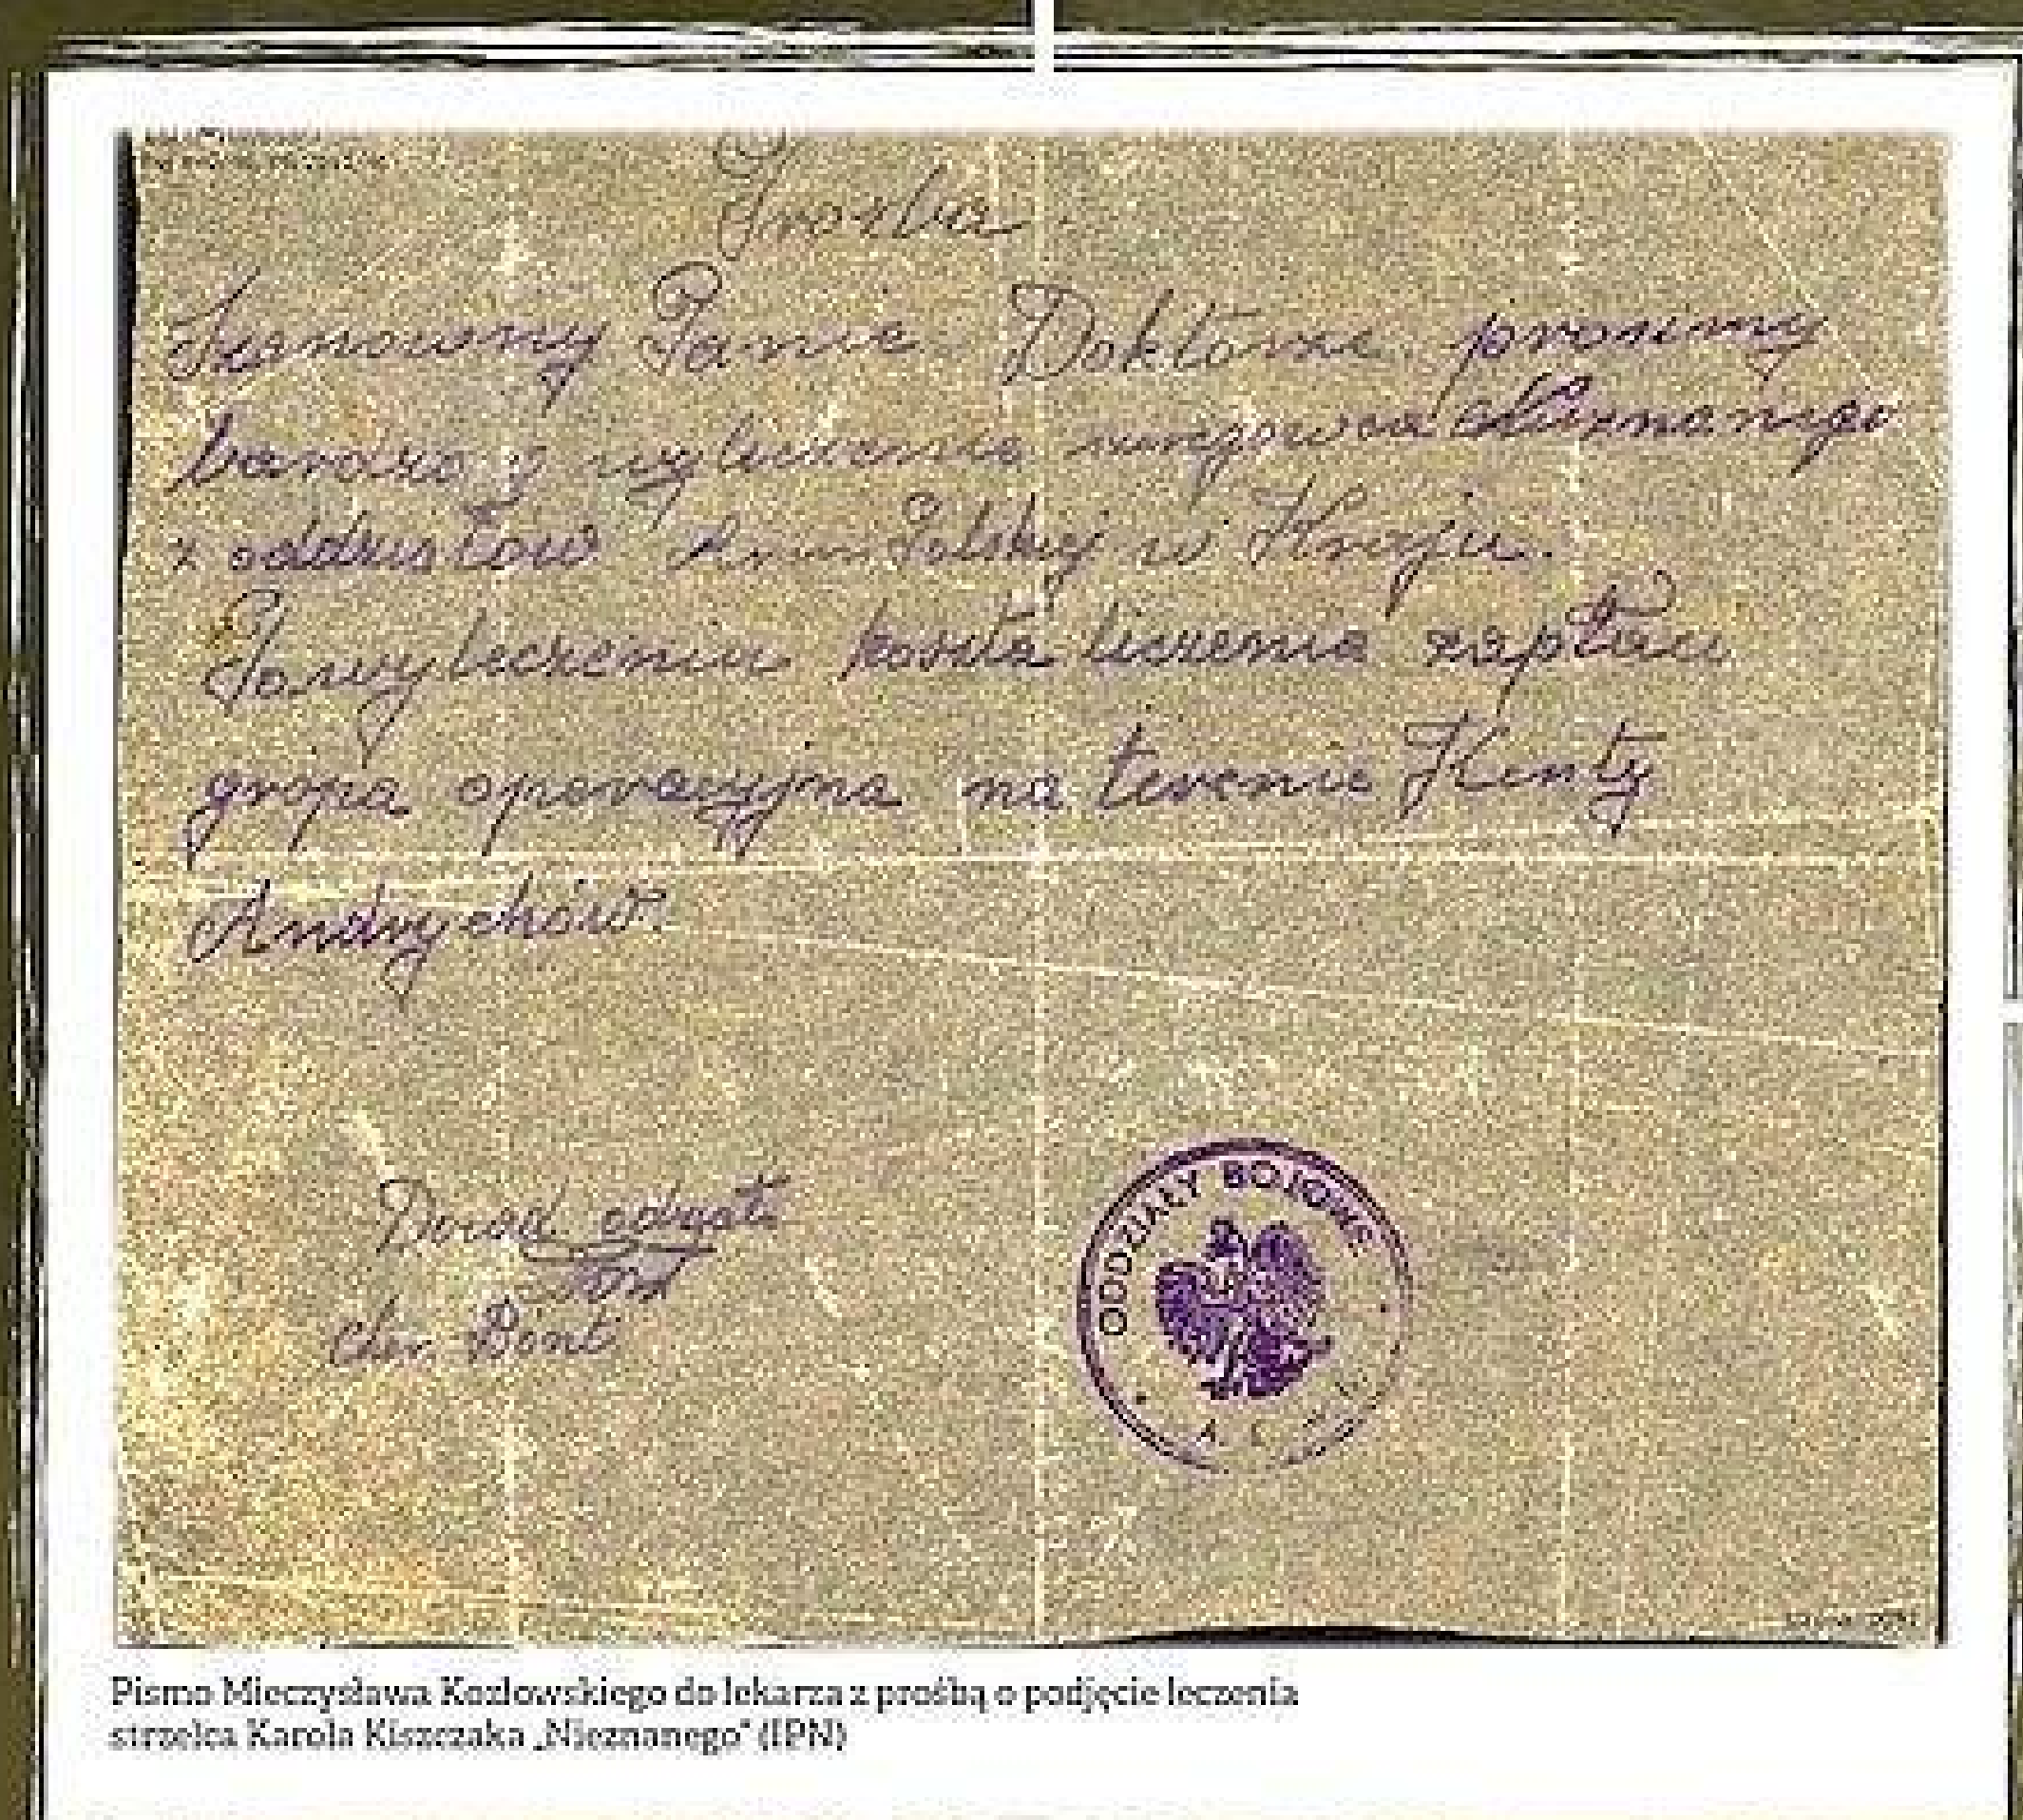 Prośba
Szanowny Panie Doktorze prosimy
bardzo z wyleczenie
z oddziałów Armi Polskiej w Kraju.
Po wyleczeniu koszta leczenia zapłaci
grupa operacyjna na terenie Kenty
Andrychów.
Dowód oddziału
chor. Bont
ODDZIAŁY BOJOWE
Pismo Mieczysława Kozłowskiego do lekarza z prośbą o podjęcie leczenia
strzelca Karola Kiszczaka „Nieznanego" (IPN)